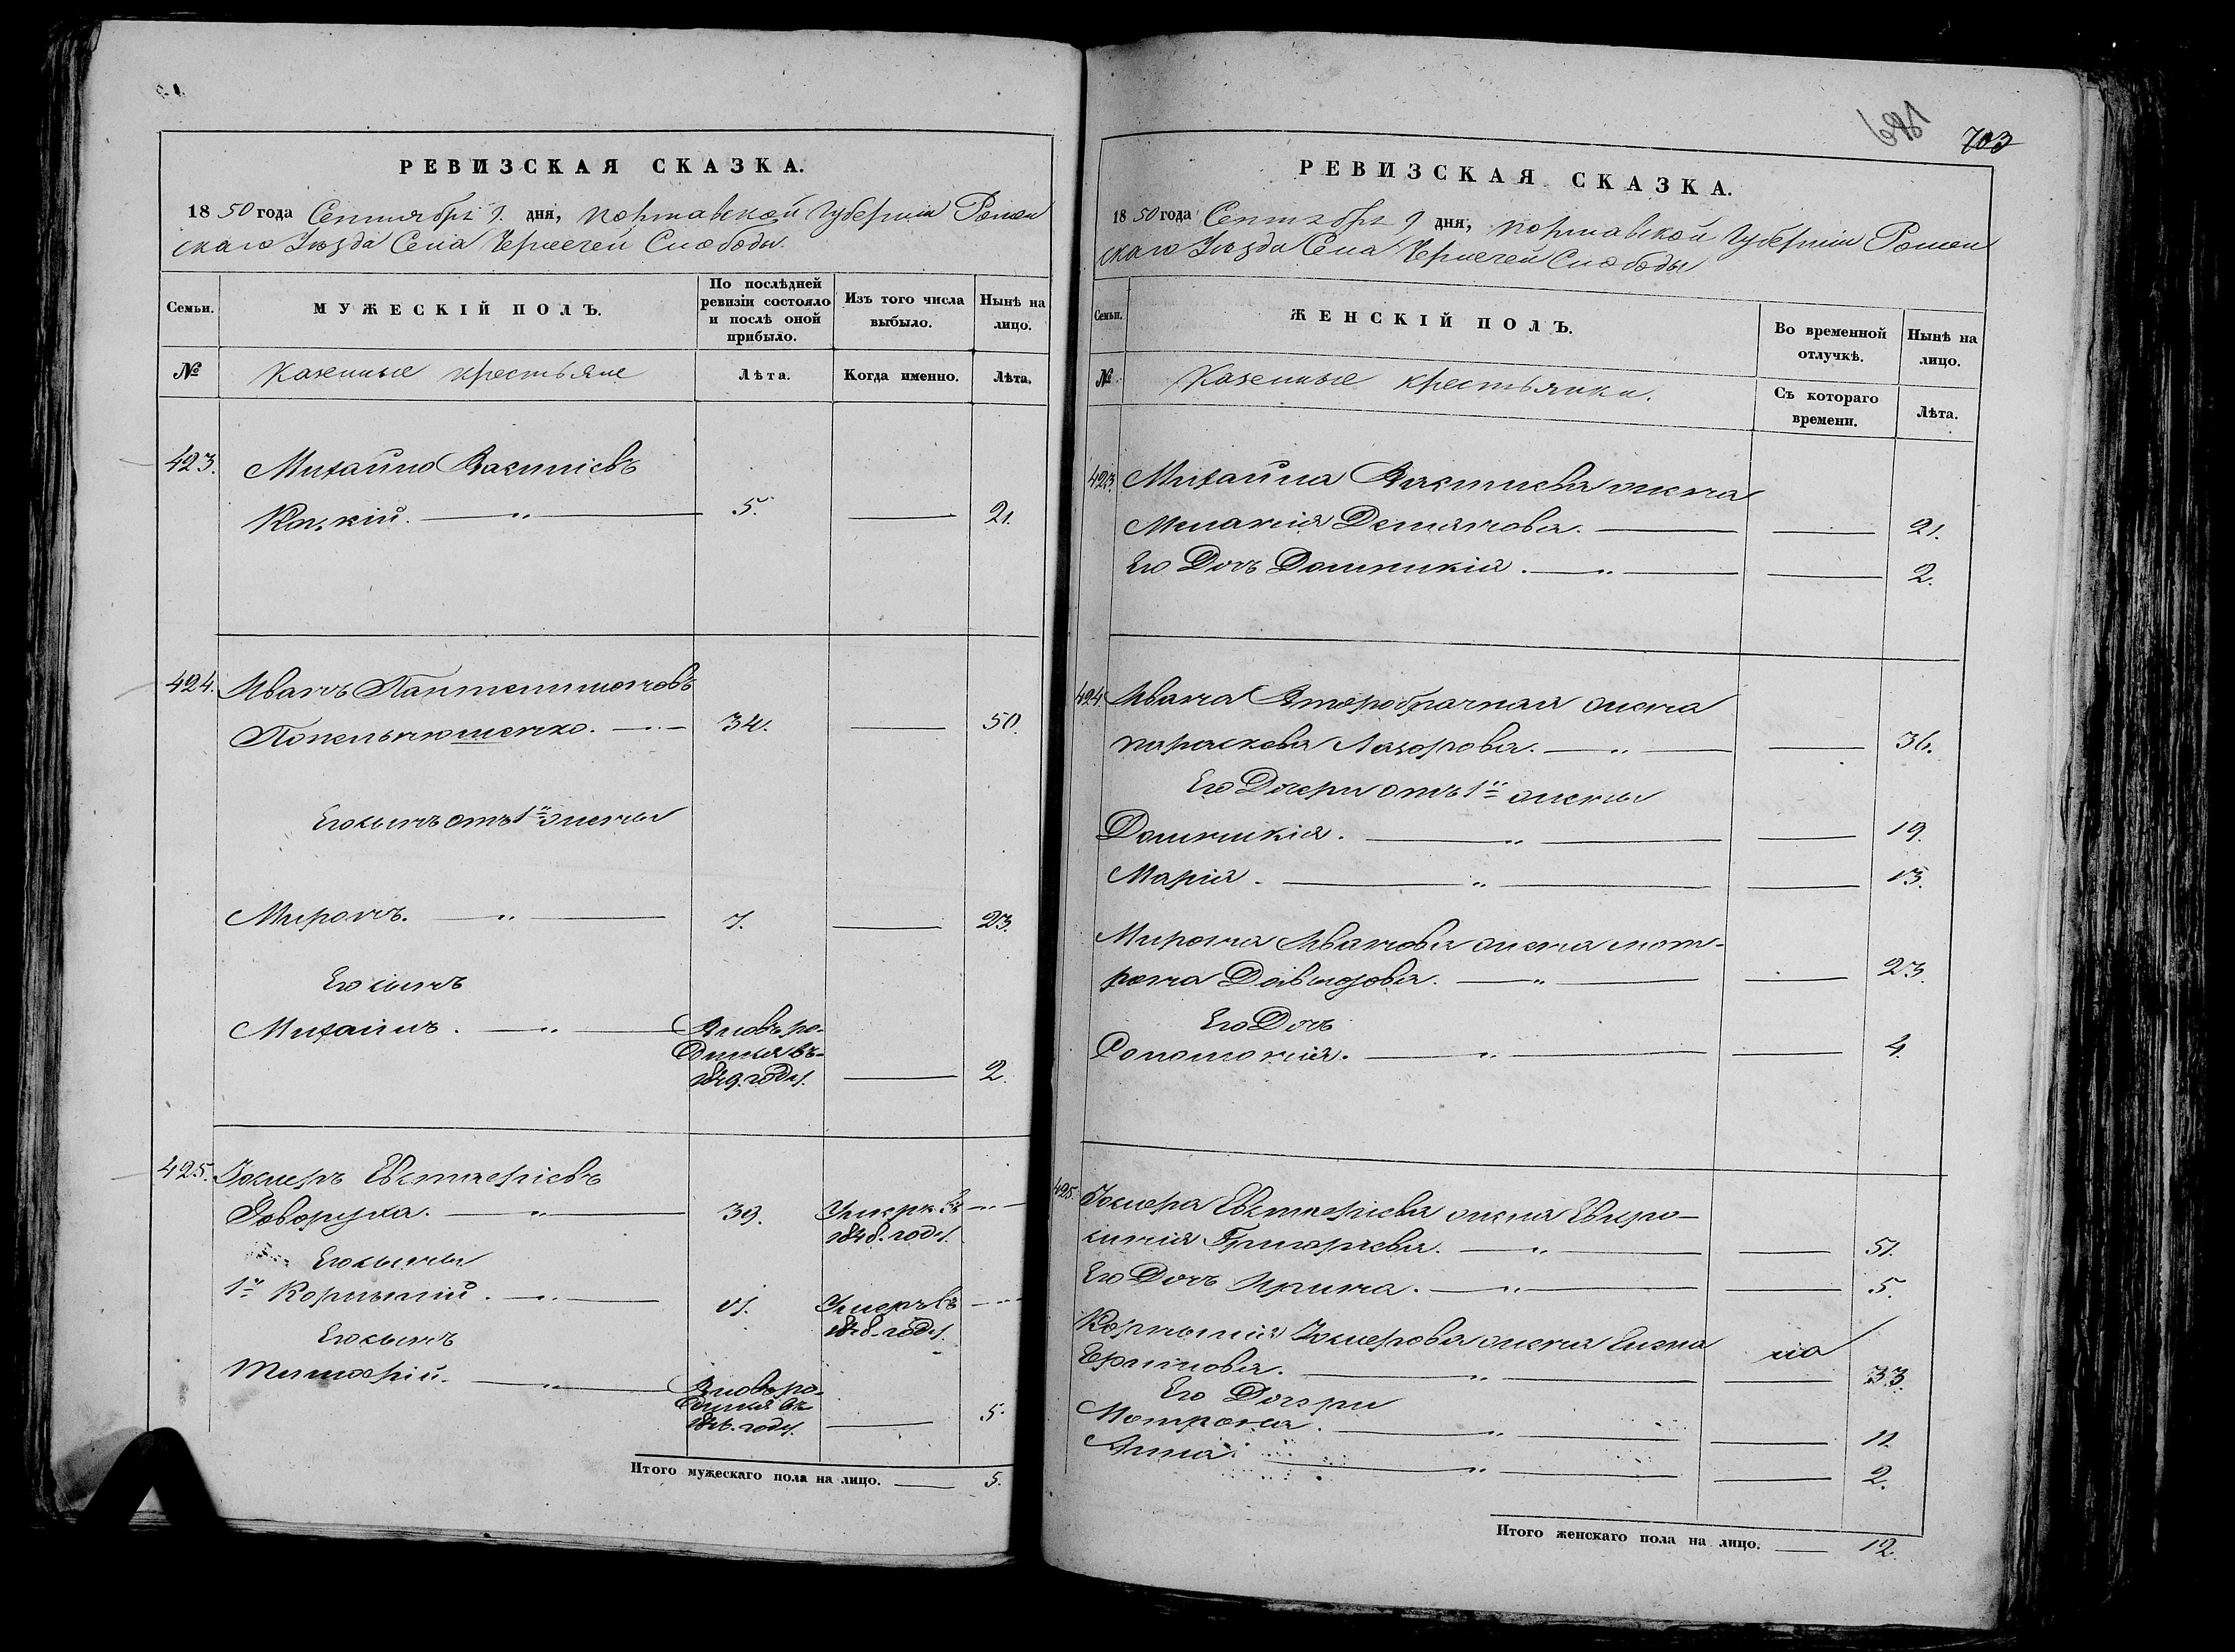 РЕВИЗСКАЯ СКАЗКА.
1850 года Сентября 9. дня, Полтавской Губернии Ромен
скаго Уезда Села Чернечей Слободы.
Семьи.
МУЖЕСКІЙ ПОЛЪ.
По послѣдней ревизіи состояло и послѣ оной прибыло.
Изъ того числа выбыло.
Нынѣ на лицо.
№
Казенные крестьяне
Лѣта.
Когда именно.
Лѣта.
423. Михайло Василіевъ
5. 21.
424. Иванъ Пантелимоновъ
34. 50.
Его сынъ отъ 1й жены
Миронъ. 7. 23.
Его сынъ
Михаилъ. Вновь ро-
дился въ
1849. году. 2.
425. Евстафіевъ
Говоруха. 39. Умеръ въ
1848. году.
Его сыны
1й Корнилій. Умеръ въ
1848. году.
Его сынъ
Тимофій. Вновь ро-
дился въ
1846. году. 5.
Итого мужескаго пола на лицо. 5.
703
РЕВИЗСКАЯ СКАЗКА.
1850 года Сентября 9 дня, Полтавской Губерніи Ромен
скаго Уезда Села Чернечей Слободы
Семьи.
ЖЕНСКІЙ ПОЛЪ.
Во временной отлучкѣ.
Нынѣ на лицо.
№
Казенные крестьянки.
Съ котораго времени.
Лѣта.
423. Михайла Василиева жена
Меланія Демянова. 21.
Его Дочь Домникія. 2.
424. Ивана Второбрачная жена
Параскева Лазорова. 36.
Его Дочери отъ 1й жены
Домникія. 19.
Марія. 13.
Мирона Иванова жена Мот-
рона Давыдова. 23.
Его Дочь
Соломонія. 4.
425. Евстафіева жена Евфро-
синія Григоріева. 51.
Его Дочь Ирина. 5.
Корнилія жена
33.
Его Дочери
Мотрона. 11.
Анна. 2.
Итого женскаго пола на лицо. 12.